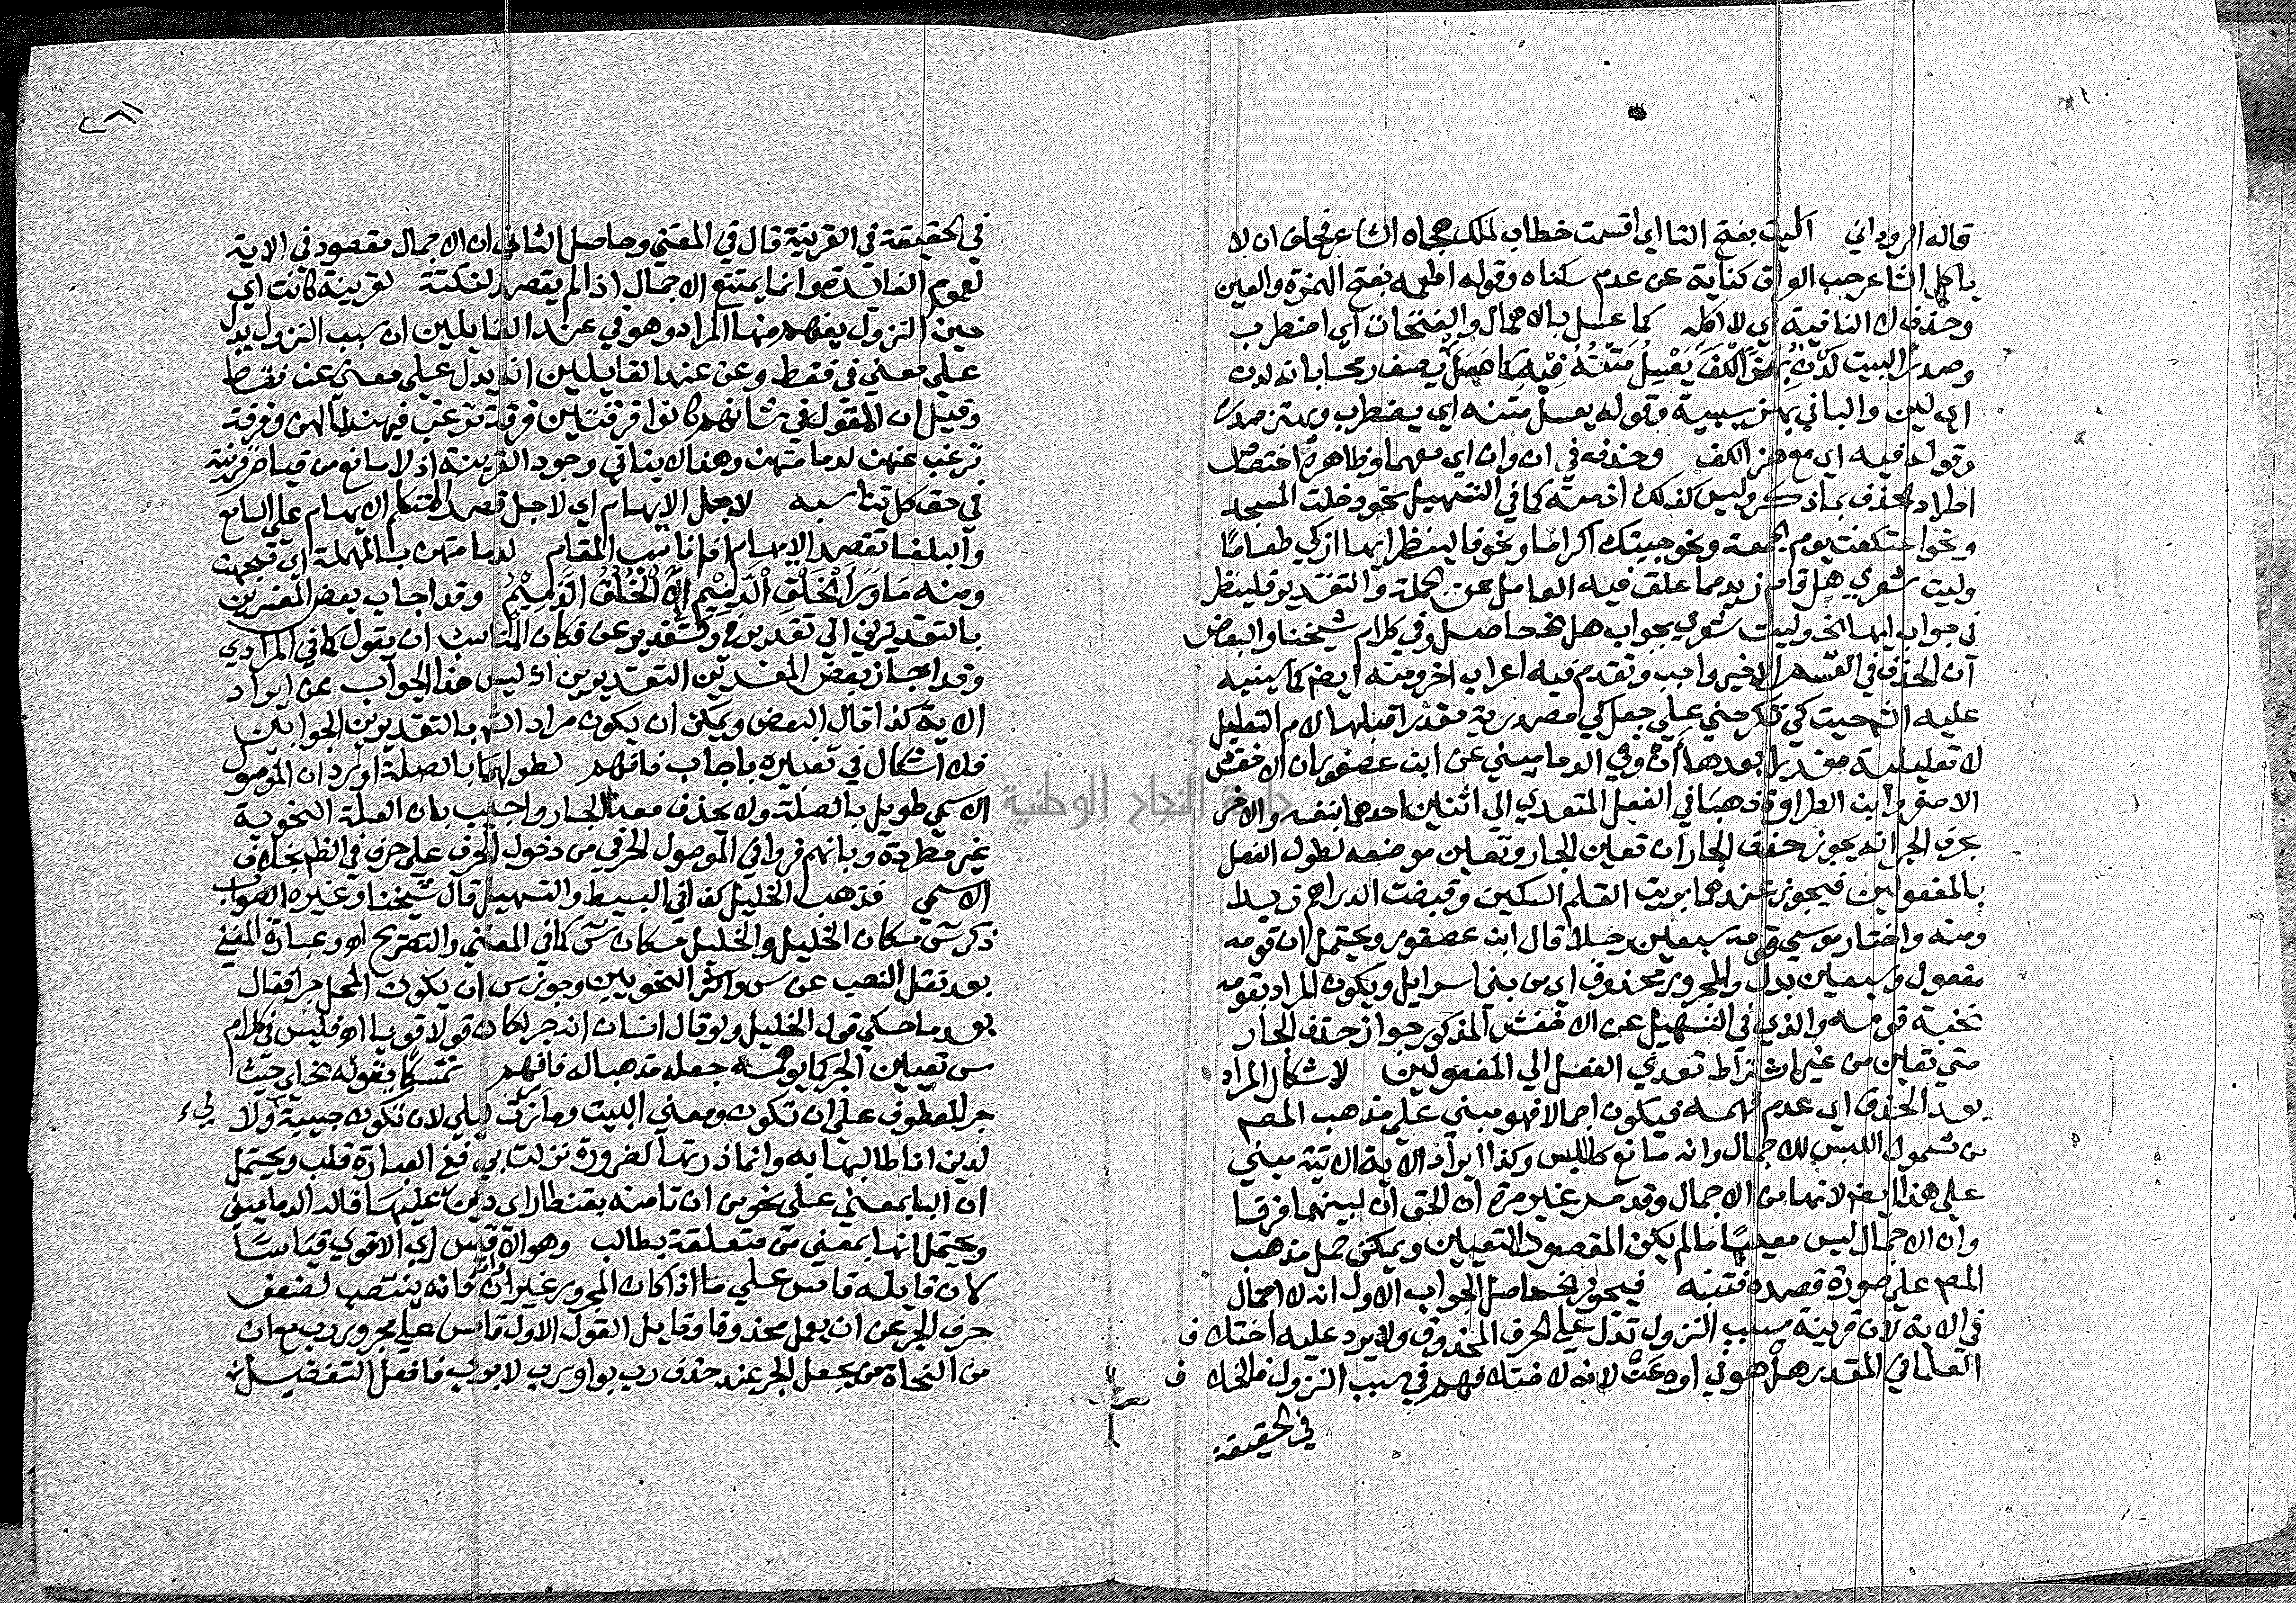 قاله الروداني آليت بفتح التا اي اقسمت خطاب لملك هجاه الشاعر فحلف ان لا
ياكل الشاعر حب العراق كناية عن عدم سكناه وقوله اطعمه بفتح الهمزة والعين
وحذف لا النافية اي لا اكله كما عسل بالاهمال والفتحات اي اضطرب
وصدر البيت لَدْنٌ بِهَزِّ الْكَفِّ يَعْسِلُ مَتْنُهُ فِيْهِ كَمَا عَسَلَ يصف رمحا بانه لدن
اي لين والبا في بهز سببية وقوله يعسل متنه اي يضطرب ويهتز صدره
وقوله فيه اي مع هز الكف وحذفه في ان وان اي معهما وظاهره اختصاص
اطراد الحذف بما ذكر وليس كذلك اذ مثله كما في التسهيل نحو دخلت المسجد
ونحو اعتكفت يوم الجمعة ونحو جيتك اكراما ونحو فلينظر ايها ازكي طعاما
وليت شعري هل قام زيد مما علق فيه العامل عن الجملة والتقدير فلينظر
في جواب ايها الخ وليت شعري بجواب هل الخ حاصل وفي كلام شيخنا والبعض
ان الحذف في القسم الاخير واجب وتقدم فيه اعراب اخر ومنه ايضا كما سينبه
عليه الش جيت كي تكرمني علي جعل كي مصدرية مقدرا قبلها لام التعليل
لا تعليلية مقدرا بعدها أن وفي الدماميني عن ابن عصفور ان الاخفش
الاصغر وابن الطراوة ذهبا في الفعل المتعدي الي اثنين احدهما بنفسه والاخر
بحرف الجر انه يجوز حذف الجار ان تعين الجار وتعين موضعه لطول الفعل
بالمفعولين فيجوز عندهما بريت القلم السكين وقبضت الدراهم زيدا
ومنه واختار موسي قومه سبعين رجلا قال ابن عصفور ويحتمل ان قومه
مفعول وسبعين بدل والمجرور محذوف اي من بني اسرايل ويكون المراد بقومه
نخبة قومه والذي في التسهيل عن الاخفش المذكور جواز حذف الجار
متي تعين من غير اشتراط تعدي الفعل الي المفعولين لاشكال المراد
بعد الحذف اي عدم فهمه فيكون اجمالا فهو مبني علي مذهب المصم
من شمول اللبس للاجمال وانه مانع كاللبس وكذا ايراد الاية الاتية مبني
علي هذا ايضا لانها من الاجمال وقد مر غير مرة ان الحق ان بينهما فرقا
وان الاجمال ليس معيبا ما لم يكن المقصود التعيين ويمكن حمل مذهب
المصم علي صورة قصده فتنبه فيجوز الخ حاصل الجواب الاول انه لا اجمال
في الاية لان قرينة سبب النزول تدل علي الحرف المحذوف ولا يرد عليه اختلاف
العلما في المقدر هل هو في او عَنْ لانه لاختلافهم في سبب النزول فالخلاف
في الحقيقة
في الحقيقة في القرينة قال في المغني وحاصل الثاني ان الاجمال مقصود في الاية
لعموم الفايدة وانما يمتنع الاجمال اذا لم يقصد لنكتة لقرينة كانت اي
حين النزول يفهم منها المراد وهو في عند القايلين ان سبب النزول يدل
علي معني في فقط وعن عند القايلين انه يدل علي معني عن فقط
وقيل ان المقول في شانهم كانوا فرقتين فرقة ترغب فيهن لمالهن وفرقة
ترغب عنهن لدمامتهن وهذا لا ينافي وجود القرينة اذ لا مانع من قيام قرينة
في حق كل تناسبه لاجل الابهام اي لاجل قصد المتكلم الابهام علي السامع
والبلغا تقصد الابهام اذا ناسب المقام لدمامتهن بالمهملة اي قبحهن
ومنه مَا وَرَا الْخَلْقِ الدَّمِيْمِ إلاَّ الْخُلُقُ الذَّمِيْمُ وقد اجاب بعض المفسرين
بالتقديرين اي تقدير في وتقدير عن فكان المناسب ان يقول كما في المرادي
وقد اجاز بعض المفسرين التقديرين اذ ليس هذا الجواب عن ايراد
الاية كذا قال البعض ويمكن ان يكون مراد الش بالتقديرين الجوابين
فلا اشكال في تعبيره باجاب فافهم لطولهما بالصلة اورد ان الموصول
الاسمي طويل بالصلة ولا يحذف معه الجار واجيب بان العلة النحوية
غير مطردة وبانهم فروا في الموصول الحرفي من دخول الحرف علي حرف في الظم بخلاف
الاسمي فذهب الخليل كذا في البسيط والتسهيل قال شيخنا وغيره الصواب
ذكر س مكان الخليل والخليل مكان س كما في المغني والتصريح اه وعبارة المغني
بعد نقل النصب عن س واكثر النحويين وجوز س ان يكون المحل جرا فقال
بعد ما حكي قول الخليل ولو قال انسان انه جر لكان قولا قويا اه فليس في كلام
س تعيين الجر كما يوهمه جعله مذهبا له فافهم تمسكا بقوله الخ اي حيث
جر المعطوف علي ان تكون ومعني البيت وما زرت ليلي لان تكون حبيبة ولا لي
لدين انا طالبها به وانما زرتها لضرورة نزلت بي ففي العبارة قلب ويحتمل
ان البا بمعني علي نحو من ان تامنه بقنطار اي دين عليها قاله الدماميني
ويحتمل انها بمعني من متعلقة بطالب وهو الاقيس اي الاقوي قياسا
لان قايله قاس علي ما اذا كان المجرور غير أن فانه ينتصب لضعف
حرف الجر عن ان يعمل محذوفا وقايل القول الاول قاس علي مجرور رب مع ان
من النحاة من يجعل الجر عند حذف رب بواو رب لا برب فافعل التفضيل